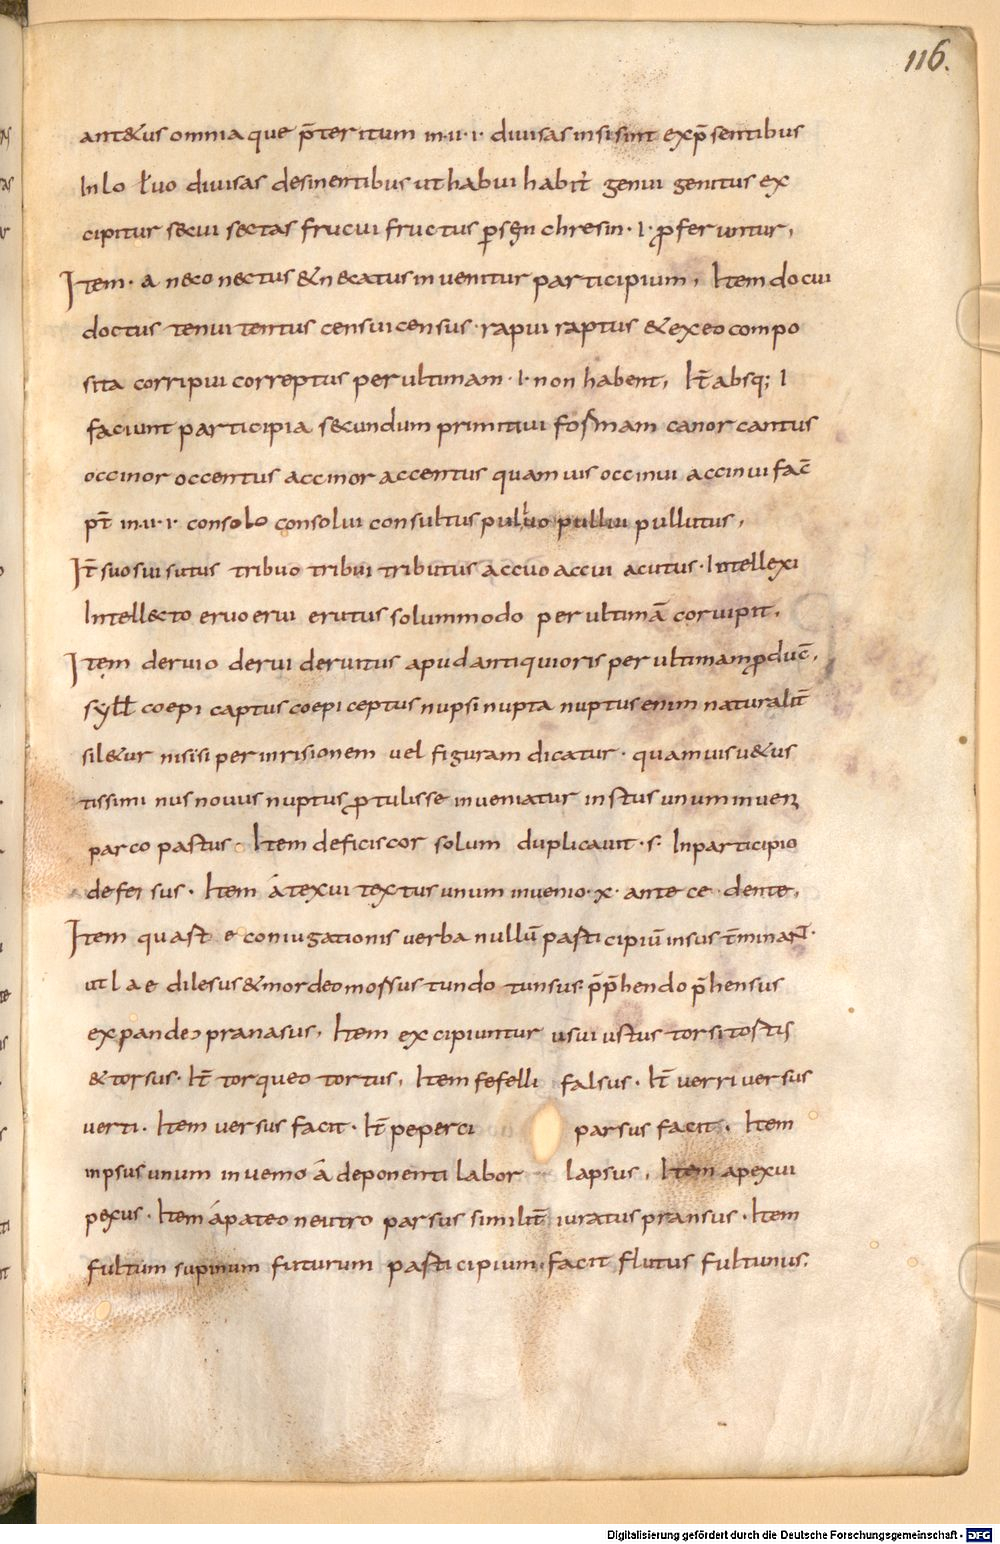 116.
ant&us omnia que p̄teritum in·u·i· diuisas in si sint exp̄sentibus
In lo ł uo diuisas desinentibus ut habui habit genui genitus ex
cipitur secui sectas frucui fructus p̱ sęn chresin · i · ꝓferuntur,
Item · a neco nectus & necatus inuenitur participium, Item docui
doctus tenui tentus censui census · rapui raptus & ex eo compo
sita corripui correptus per ultimam · i · non habent, It̄ absq; i
faciunt participia secundum primitiui formam canor cantus
occinor occentus accinor accentus quamuis occinui accinui fac̄
pt̄ in·u·i· consolo consolui consultus pulluo pullui pullutus,
It̄ suo sui sutus tribuo tribui tributus accuo accui acutus · Intellexi
Intellecto eruo erui erutus solummodo per ultimā corripit,
Item deruio derui deruitus apud antiquioris per ultimam ꝓduc̄,
syłł coepi captus coepi ceptus nupsi nupta nuptus enim naturalit̄
sil&ur nisi si per inrisionem uel figuram dicatur · quamuis u&us
tissimi nus nouus nuptus ꝓtulisse inueniatur in stus unum inuen
parco pastus · Item deficiscor solum duplicauit · s · In participio
defessus · Item á texui textus unum inuenio · x · ante ce dente,
Item quast e coniugationis uerba nullū participiū in sus t̄minant·
ut lae di lesus & mordeo morsus tundo tunsus p̄p̄hendo p̄hensus
expando pranasus, Item excipiuntur usui ustus torsi tostis
& torsus · It̄ torqueo tortus, Item fefelli falsus · It̄ uerri uersus
uerti · Item uersus facit · It̄ peperci parsus facit, Item
in psus unum inuenio á deponenti labor lapsus, Item a pexui
pexus · Item á pateo neutro parsus similit̄ iuratus pransus · Item
fultum supinum futurum participium · facit flutus fulturus.
Digitalisierung gefördert durch die Deutsche Forschungsgemeinschaft - DFG